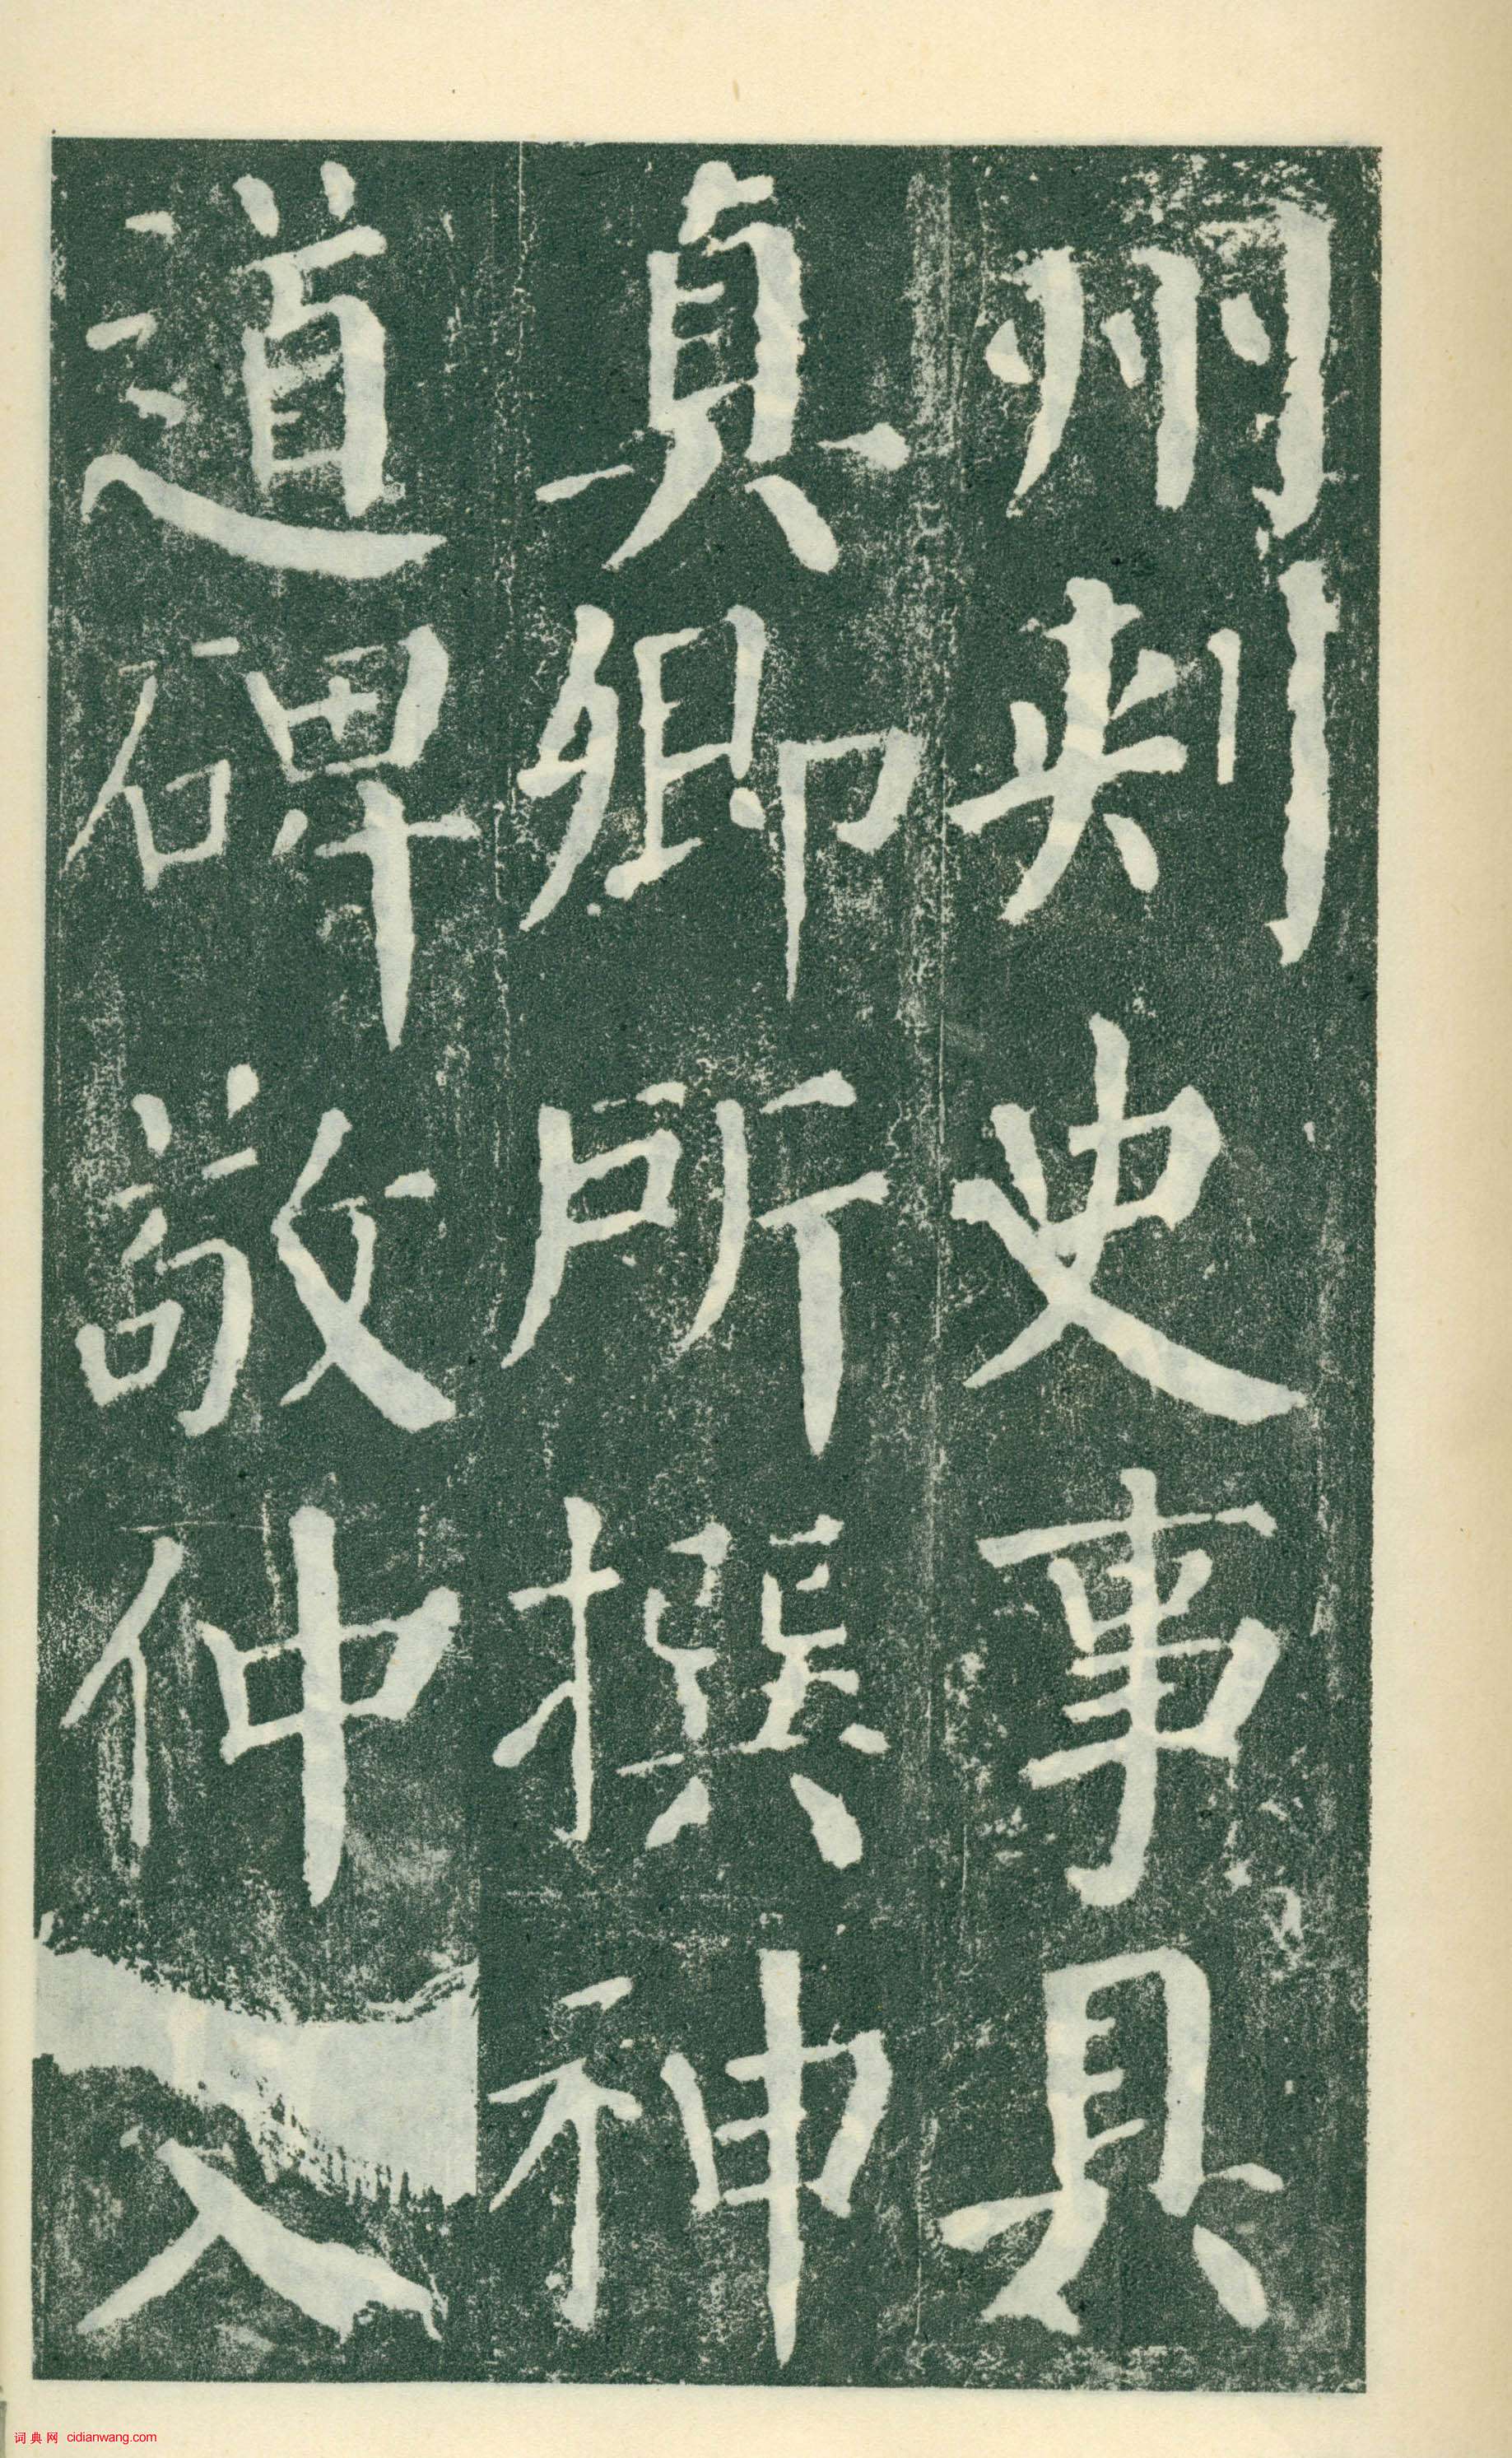 州刺史事具
真卿所撰神
道碑敬仲入
词典网 cidianwang.com